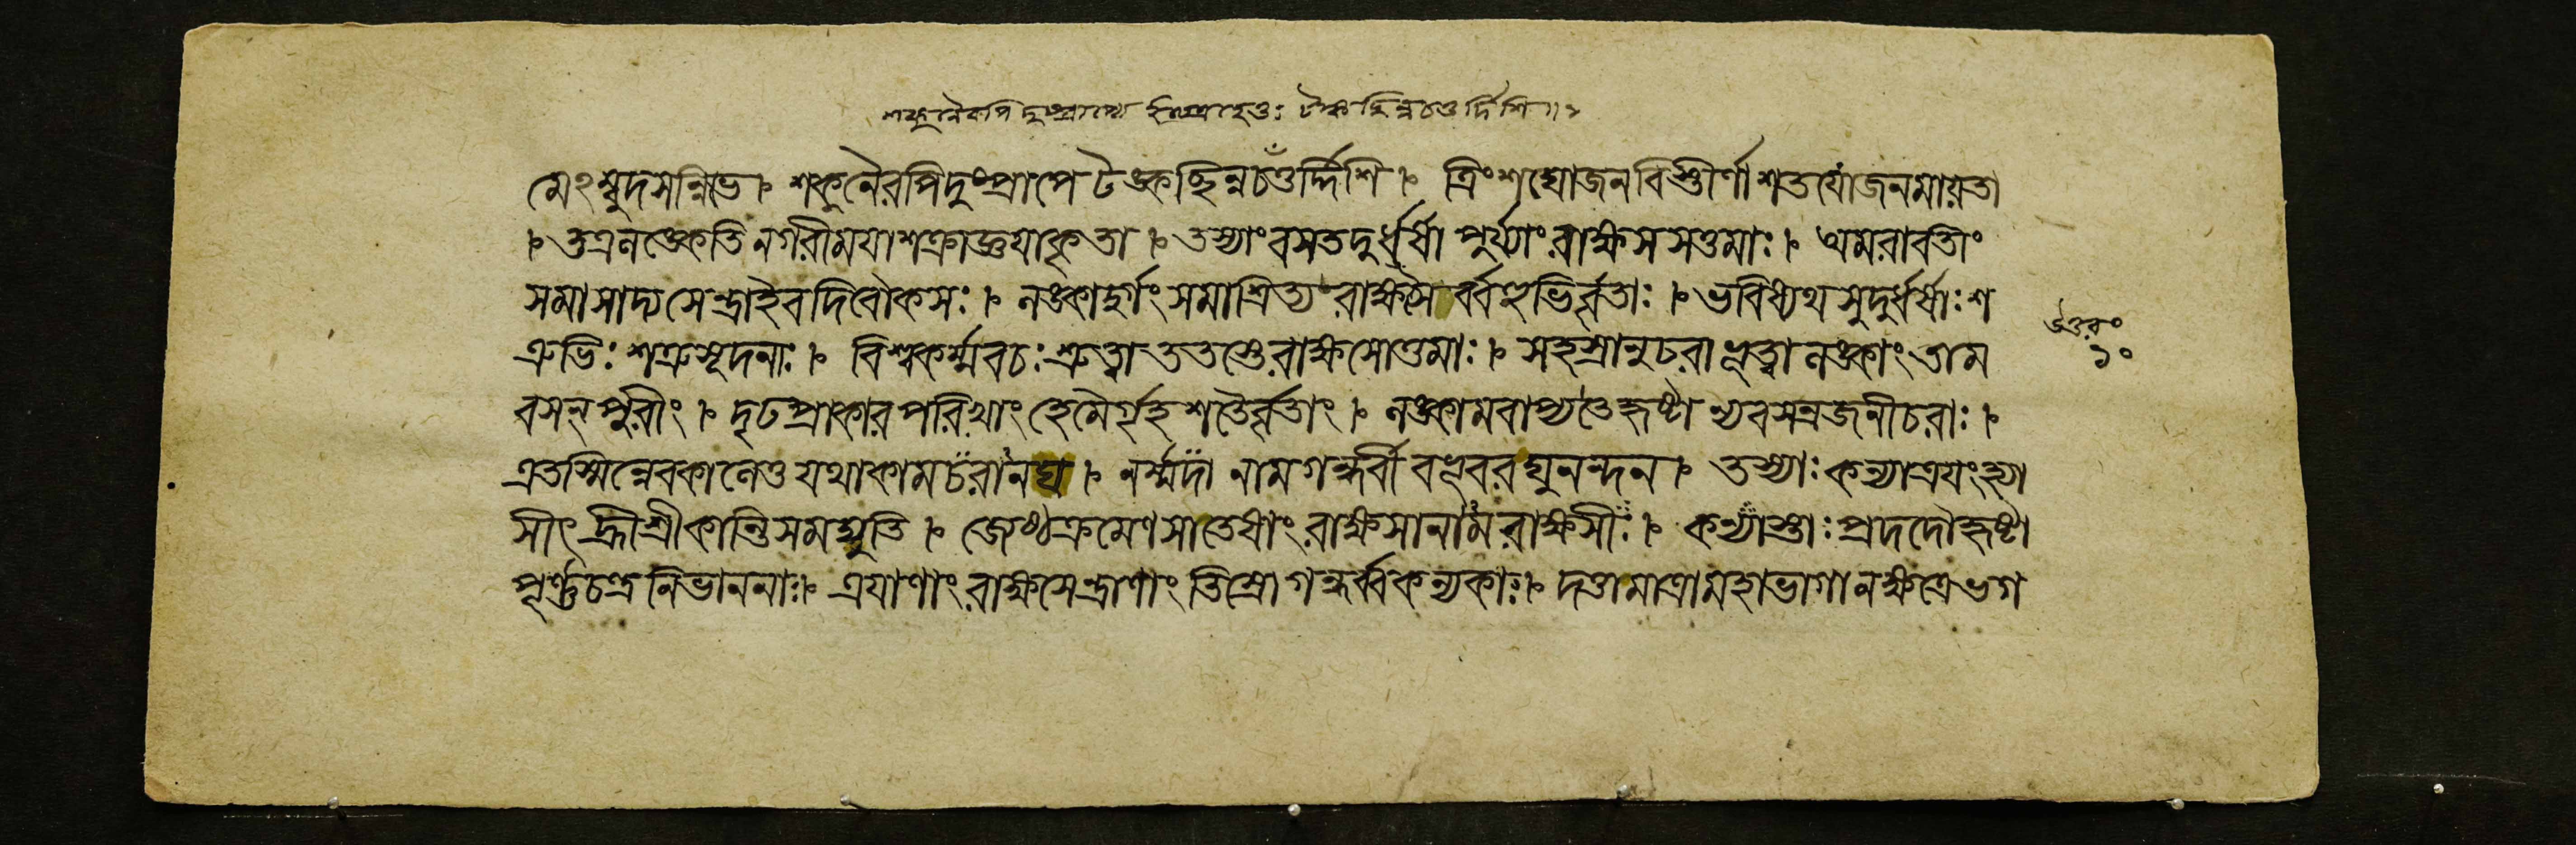 শকুনৈরপিদুঃপ্রাপ্যে টঙ্কছিন্নচতুর্দিশি ॥ ১
মেঽম্বুদসন্নিভে । শকুনৈরপিদুঃপ্রাপে টঙ্কচ্ছিন্নচতুর্দ্দিশি । ত্রিংশদ্যোজনবিস্তীর্ণা শতযোজনমায়তা
। তত্রলঙ্কেতি নগরীময়াশক্রাজ্ঞয়াকৃতা । তস্যাংবসতদুর্ধর্ষা পুর্য্যাংরাক্ষসসত্তমাঃ । অমরাবতীং
সমাসাদ্য সেন্দ্রাইবদিবৌকসঃ । লঙ্কাদুর্গংসমাশ্রিত্য রাক্ষসৈর্বহুভির্বৃতাঃ । ভবিষ্যথ সুদুর্ধর্ষাঃ শ
ত্রুভিঃ শত্রুসূদনাঃ । বিশ্বকর্ম্মবচঃশ্রুত্বা ততস্তেরাক্ষসোত্তমাঃ । সহস্রানুচরাভূত্বা লঙ্কাংতাম
বসন্পুরীং । দৃঢপ্রাকারপরিখাং হৈমৈর্গৃহশতৈর্বৃতাং । লঙ্কামবাপ্যতেহৃষ্টা ন্যবসন্রজনীচরাঃ ।
এতস্মিন্নেবকালেতু যথাকামচরানঘ । নর্ম্মদা নামগন্ধর্বী বভূবরঘুনন্দন । তস্যাঃ কন্যাত্রয়ংহ্যা
সীৎ হ্রীশ্রীকান্তিসমদ্যুতি । জেষ্ঠক্রমেণসাতেষাং রাক্ষসানামরাক্ষসীঃ । কন্যাস্তাঃ প্রদদৌহৃষ্টা
পূর্ণ্ণচন্দ্রনিভাননাঃ । ত্রয়াণাং রাক্ষসেন্দ্রাণাং তিস্রোগন্ধর্ব্বকন্যকাঃ । দত্তামাত্রামহাভাগা নক্ষত্রেভগ
উত্তরং
১০